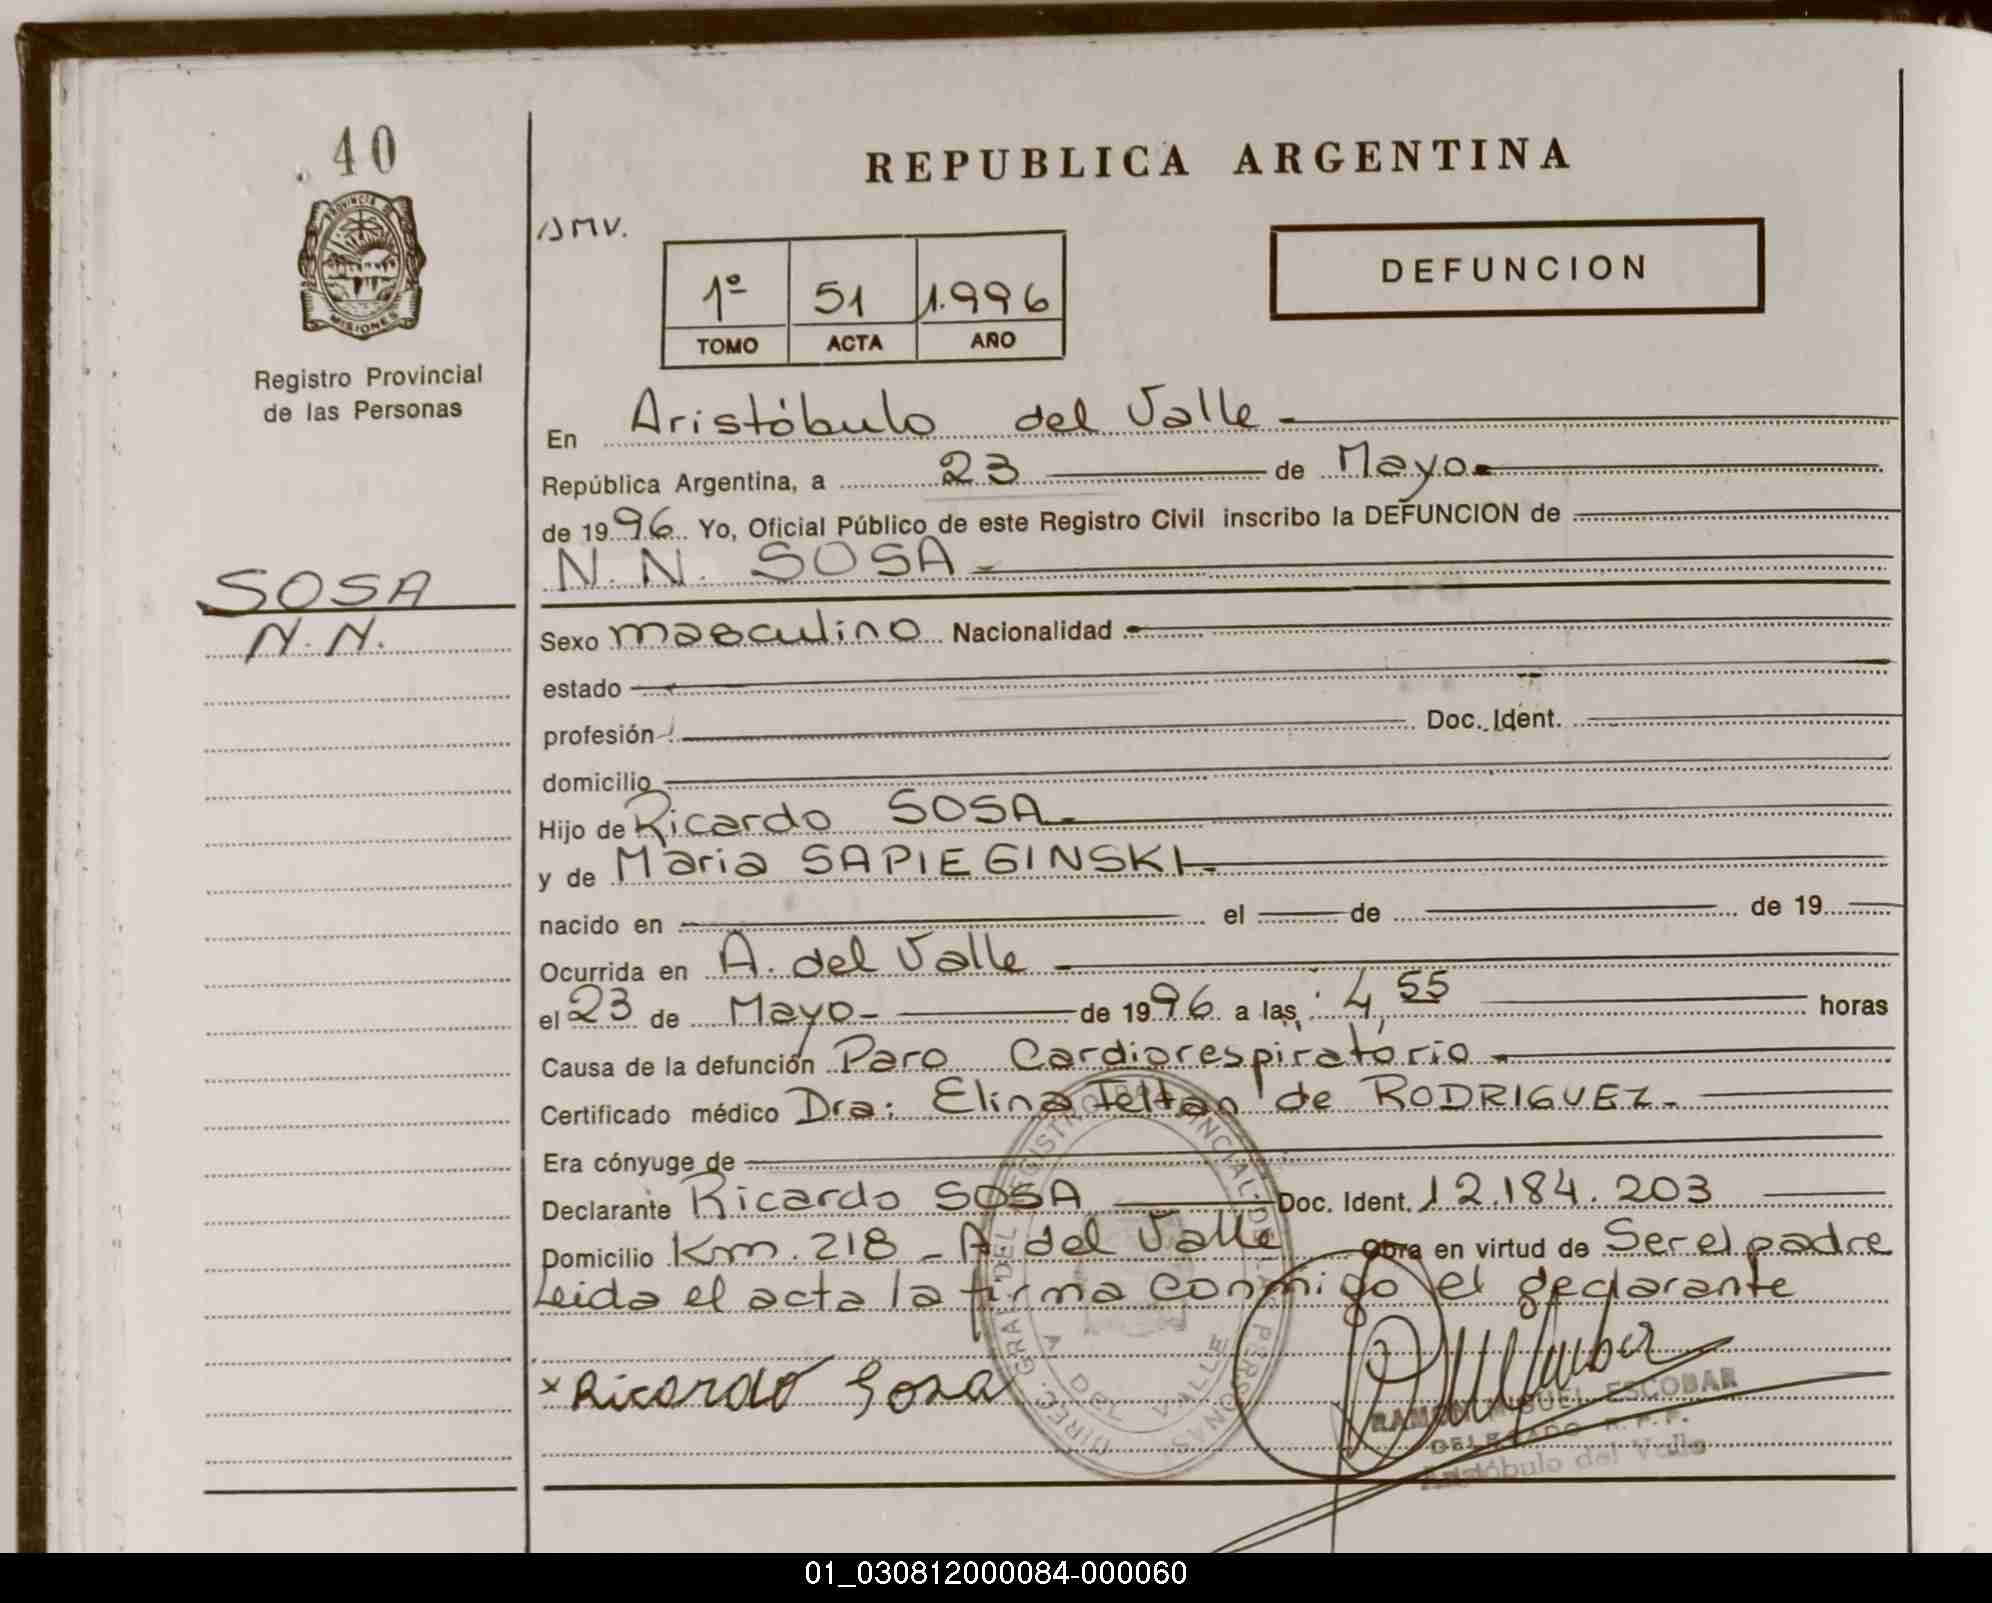 40
PROVINCIA DE
MISIONES
Registro Provincial
de las Personas
SOSA
N.N.
REPUBLICA ARGENTINA
DEFUNCION
1º 51 1.996
TOMO ACTA AÑO
En Aristóbulo del Valle -
República Argentina, a 23 de Mayo-
de 1996 Yo, Oficial Público de este Registro Civil inscribo la DEFUNCION de
N. N. SOSA -
Sexo masculino Nacionalidad
estado
profesión Doc. Ident.
domicilio
Hijo de Ricardo SOSA-
y de Maria SAPIEGINSKI-
nacido en el de de 19
Ocurrida en A. del Valle -
el 23 de Mayo- de 1996 a las 4,55 horas
Causa de la defunción Paro Cardiorespiratorio -
Certificado médico Dra: Elina de RODRIGUEZ-
Era cónyuge de
Declarante Ricardo SOSA Doc. Ident. 12.184.203
Domicilio Km. 218 - A del Valle Obra en virtud de Ser el padre
Leida el acta la firma conmigo el declarante
x Ricardo Sosa
RAMON MIGUEL ESCOBAR
DELEGADO R.P.P.
Aristóbulo del Valle
DIREC. GRAL DEL REGISTRO PROVINCIAL DE LAS PERSONAS
A DEL VALLE
01_030812000084-000060